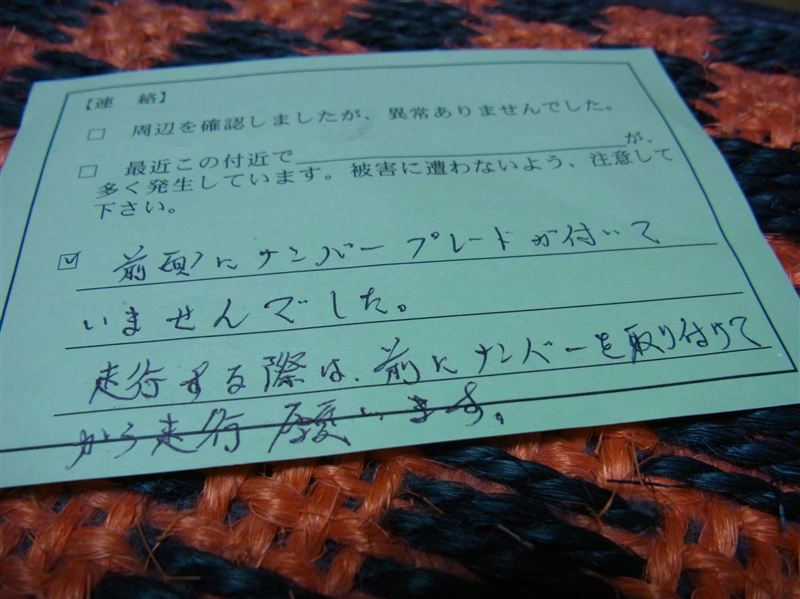 【連 絡】
□ 周辺を確認しましたが、異常ありませんでした。
□ 最近この付近で が、
多く発生しています。被害に遭わないよう、注意して
下さい。
☑ 前面にナンバープレードが付いて
いませんでした。
走行する際は、前にナンバーを取り付けて
から走行 願います。